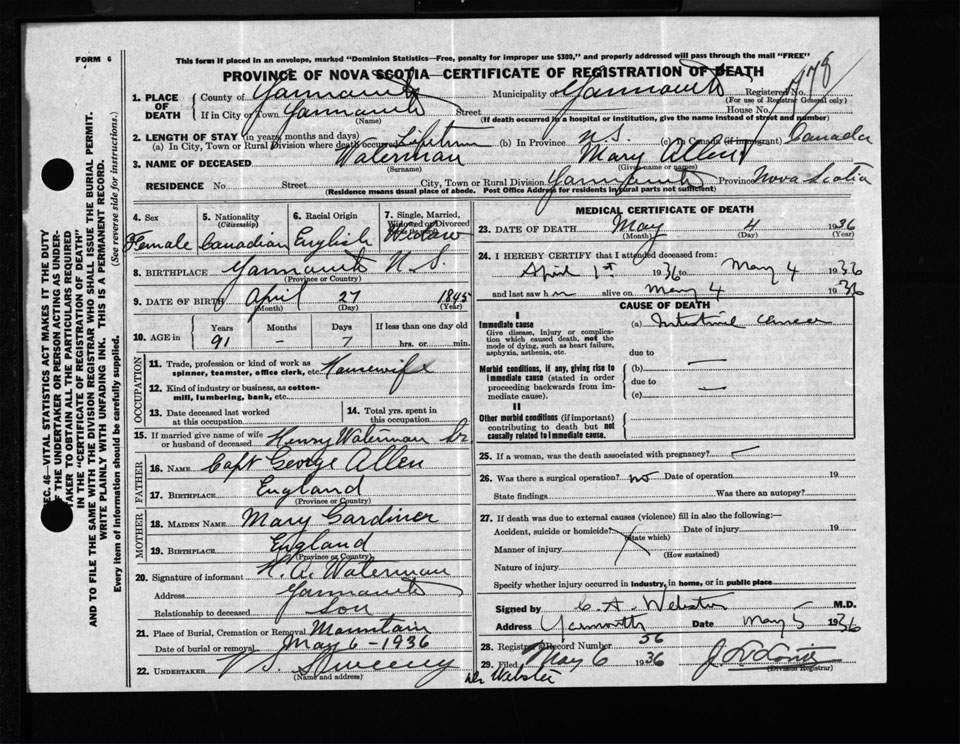 FORM 6
This form if placed in an envelope, marked "Dominion Statistics—Free, penalty for improper use $300," and properly addressed will pass through the mail "FREE"
PROVINCE OF NOVA SCOTIA—CERTIFICATE OF REGISTRATION OF DEATH
1. PLACE OF DEATH
County of Yarmouth Municipality of Yarmouth Registered No. 478
(For use of Registrar General only)
If in City or Town Yarmouth Street House No.
(Name) (If death occurred in a hospital or institution, give the name instead of street and number)
2. LENGTH OF STAY (in years, months and days)
(a) In City, Town or Rural Division where death occurred Lifetime (b) In Province N S (c) In Canada (if immigrant) Canada
3. NAME OF DECEASED Waterman Mary Allen
(Surname) (Given name or names)
RESIDENCE No. Street City, Town or Rural Division Yarmouth Province Nova Scotia
(Residence means usual place of abode. Post Office Address for residents in rural parts not sufficient)
4. Sex Female
5. Nationality (Citizenship) Canadian
6. Racial Origin English
7. Single, Married, Widowed or Divorced Widow
8. BIRTHPLACE Yarmouth N S.
(Province or Country)
9. DATE OF BIRTH April 27 1845
(Month) (Day) (Year)
10. AGE in Years Months Days If less than one day old
91 – 7 hrs. or min.
OCCUPATION
11. Trade, profession or kind of work as spinner, teamster, office clerk, etc. Housewife
12. Kind of industry or business, as cotton-mill, lumbering, bank, etc.
13. Date deceased last worked at this occupation
14. Total yrs. spent in this occupation
15. If married give name of wife or husband of deceased Henry Waterman Sr
FATHER
16. NAME Capt George Allen
17. BIRTHPLACE England
(Province or Country)
MOTHER
18. MAIDEN NAME Mary Gardiner
19. BIRTHPLACE England
(Province or Country)
20. Signature of informant H. A. Waterman
Address Yarmouth
Relationship to deceased Son
21. Place of Burial, Cremation or Removal Mountain
Date of burial or removal May 6 – 1936
22. UNDERTAKER V S. Sweeny
(Name and address)
Dr Webster
MEDICAL CERTIFICATE OF DEATH
23. DATE OF DEATH May 4 1936
(Month) (Day) (Year)
24. I HEREBY CERTIFY that I attended deceased from:
April 1st 1936 to May 4 1936
and last saw h alive on May 4 1936
CAUSE OF DEATH
I
Immediate cause (a) Intestinal cancer
Give disease, injury or complication which caused death, not the mode of dying, such as heart failure, asphyxia, asthenia, etc.
due to
Morbid conditions, if any, giving rise to immediate cause (stated in order proceeding backwards from immediate cause). (b) —
due to
(c) —
II
Other morbid conditions (if important) contributing to death but not causally related to immediate cause.
25. If a woman, was the death associated with pregnancy? –
26. Was there a surgical operation? no Date of operation 19
State findings Was there an autopsy?
27. If death was due to external causes (violence) fill in also the following:—
Accident, suicide or homicide? Date of injury 19
(State which)
Manner of injury
(How sustained)
Nature of injury
Specify whether injury occurred in industry, in home, or in public place
Signed by C. A. Webster M.D.
Address Yarmouth Date May 5 1936
28. Registrar's Record Number 56
29. Filed May 6 1936
(Division Registrar)
SEC. 46—VITAL STATISTICS ACT MAKES IT THE DUTY
OF THE UNDERTAKER OR PERSON ACTING AS UNDER-
TAKER TO OBTAIN ALL THE PARTICULARS REQUIRED
IN THE "CERTIFICATE OF REGISTRATION OF DEATH"
AND TO FILE THE SAME WITH THE DIVISION REGISTRAR WHO SHALL ISSUE THE BURIAL PERMIT.
WRITE PLAINLY WITH UNFADING INK. THIS IS A PERMANENT RECORD.
Every item of Information should be carefully supplied. (See reverse side for instructions.)